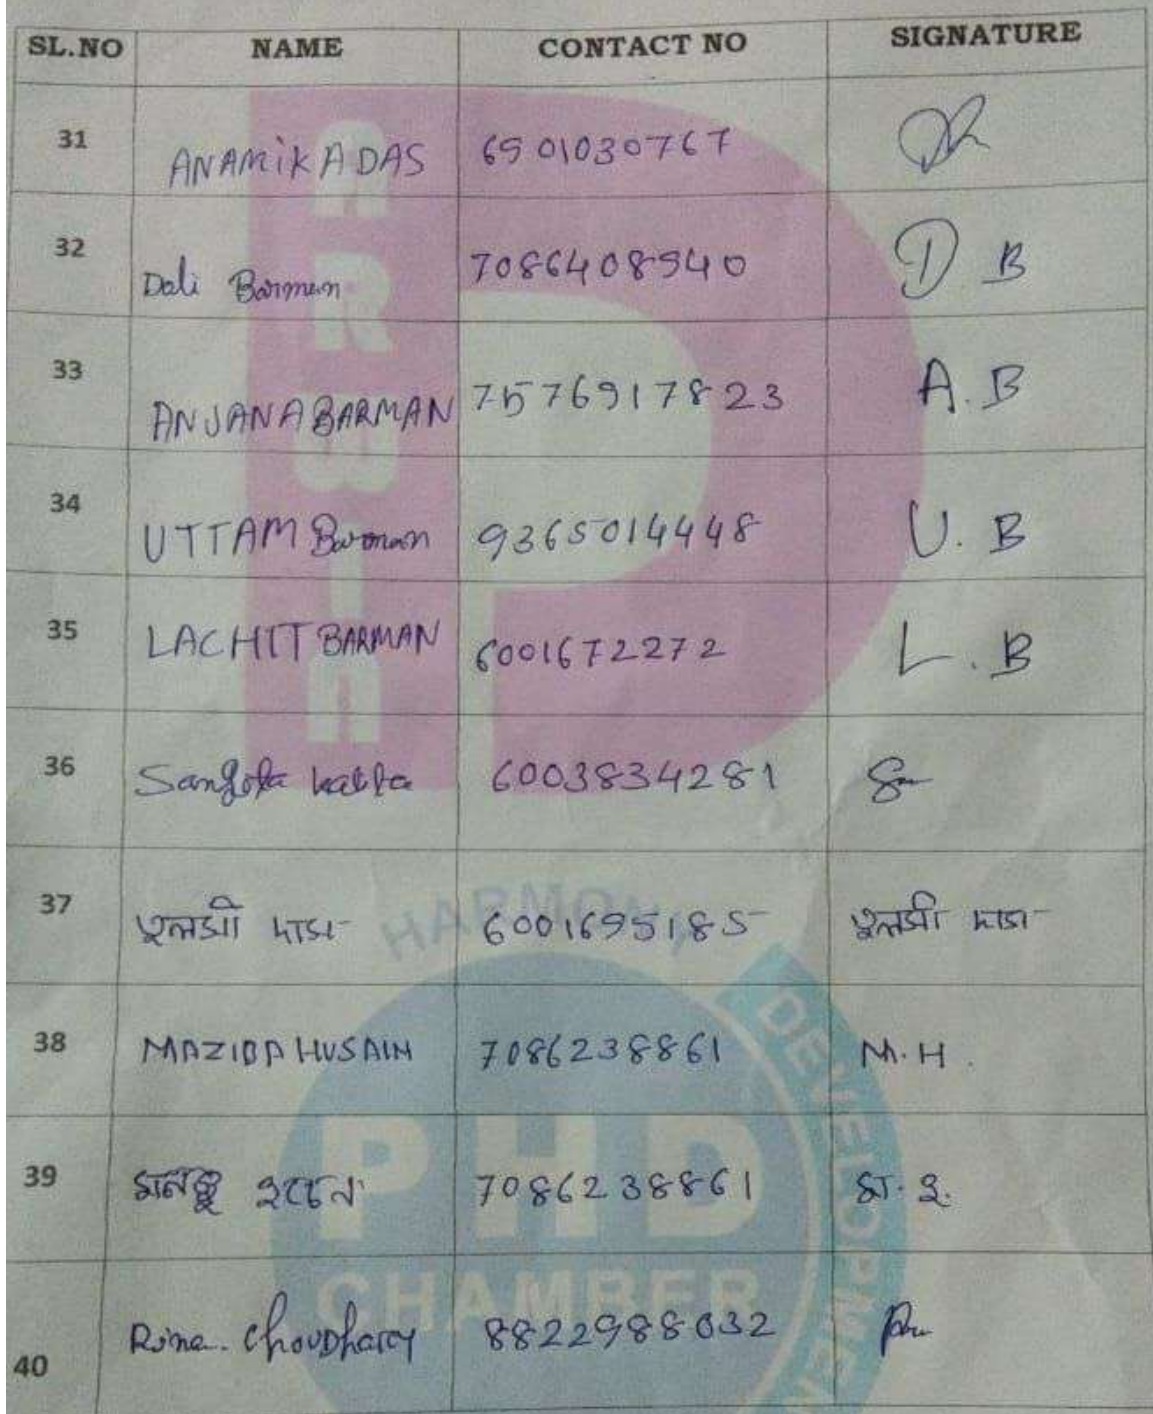 SL.NO NAME CONTACT NO SIGNATURE
31 ANAMIKA DAS 6901030767
32 Dali Barman 7086408940 D B
33 ANJANA BARMAN 7576917823 A.B
34 UTTAM Barman 9365014448 U. B
35 LACHIT BARMAN 6001672272 L.B
36 6003834281
37 তুলসী দাস 6001695185 তুলসী দাস
38 MAZIDA HUSAIN 7086238861 M.H.
39 7086238861
40 Rima Choudhary 8822988032
HARMONY
DEVELOPMEN
PHD
CHAMBER